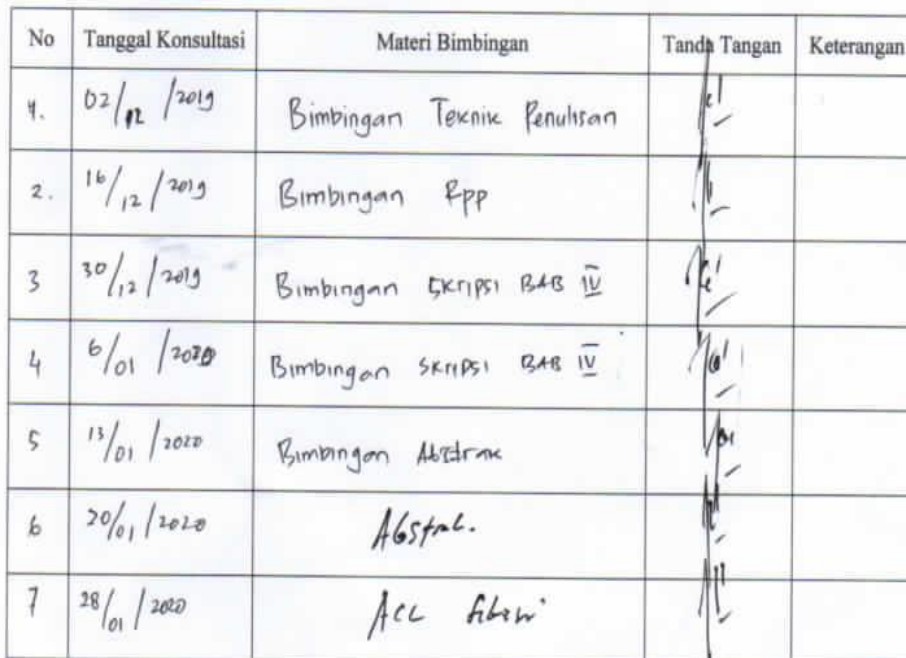 No Tanggal Konsultasi Materi Bimbingan Tanda Tangan Keterangan
1. 02/12/2019 Bimbingan Teknik Penulisan
2. 16/12/2019 Bimbingan Rpp
3 30/12/2019 Bimbingan SKripsi BAB IV
4 6/01/2020 Bimbingan SKRIPSI BAB IV
5 13/01/2020 Bimbingan Abstrak
6 20/01/2020 Abstrak.
7 28/01/2020 Acc